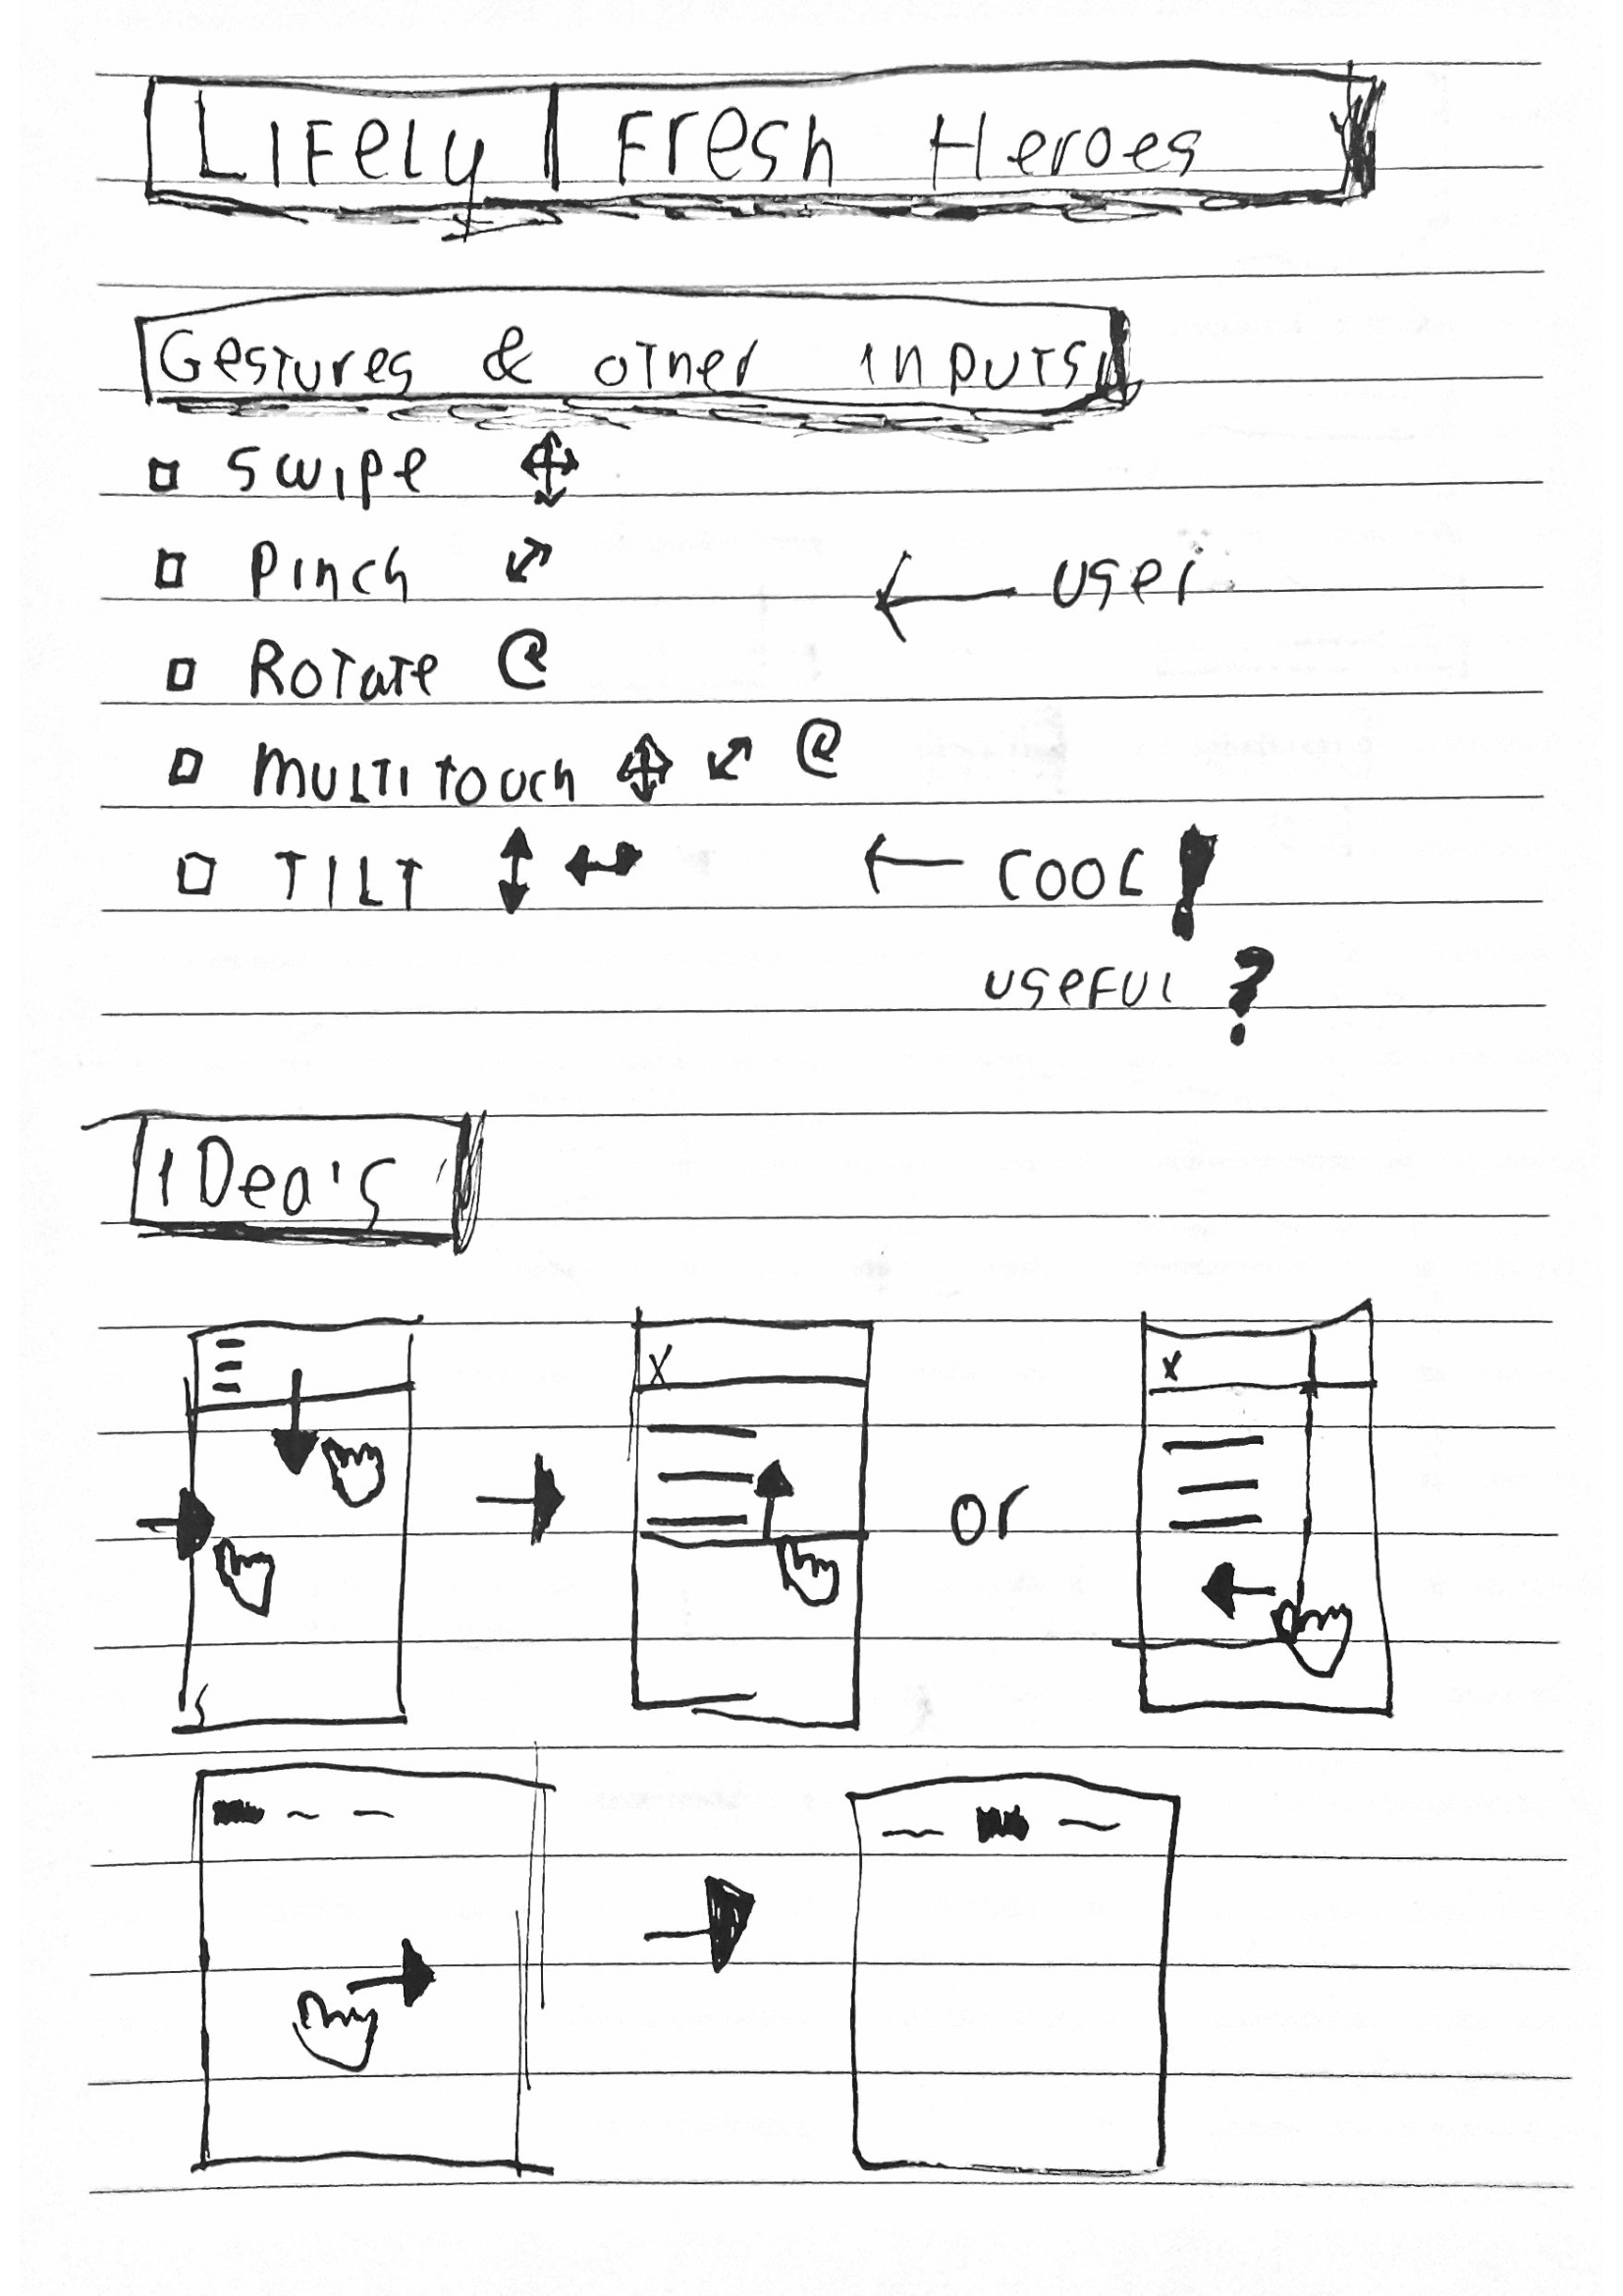 Lifely | Fresh Heroes
Gestures & other inputs
Swipe
Pinch
← user
Rotate
Multi touch
Tilt
← cool!
useful ?
iDea's
X
X
or